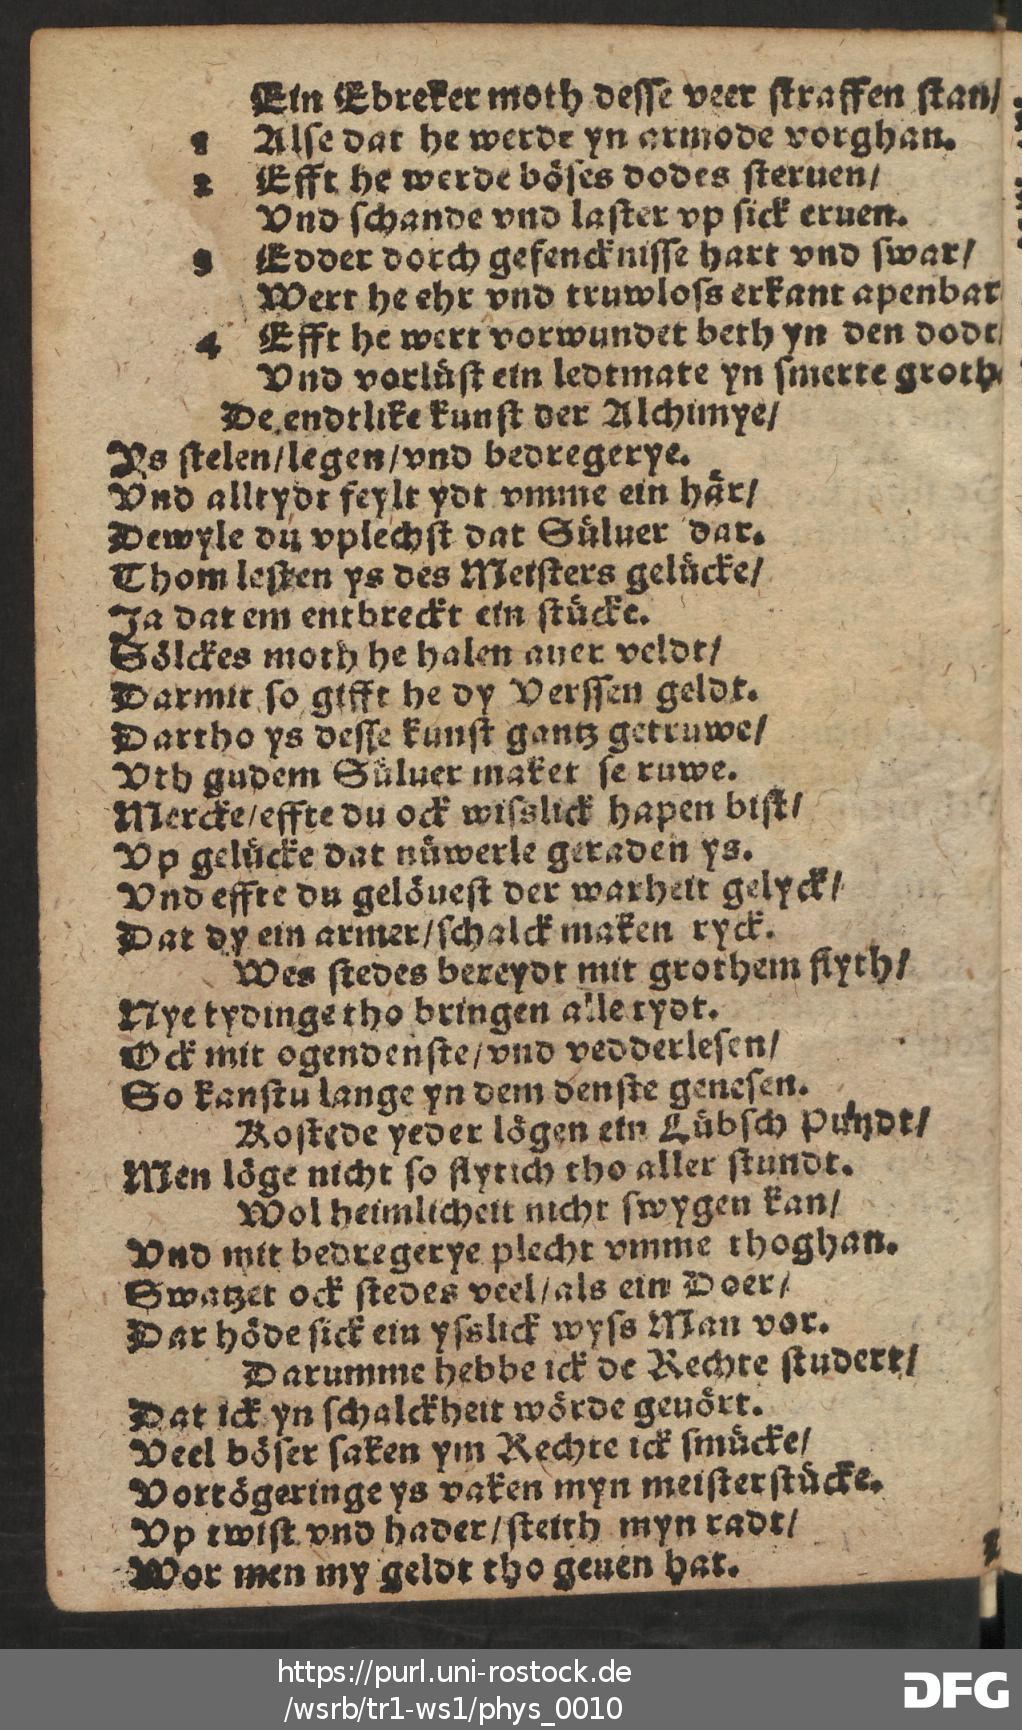 Ein Ebreker moth desse veer straffen stan/
1 Alse dat he werde yn armode vorghan.
2 Efft he werde böses dodes steruen/
Vnd schande vnd laster vp sick eruen.
3 Edder dorch gefencknisse hart vnd swar/
Wert he ehr vnd truwloss erkant apenbar
4 Efft he wert vorwundet beth yn den dodt
Vnd vorlüst ein ledtmate yn smerte groth
De endtlike kunst der Alchimye/
Ys stelen/legen/vnd bedregerye.
Vnd alltydt feylt ydt vmme ein här/
Dewyle du vplechst dat Süluer dar.
Thom lesten ys des Meisters gelücke/
Ja dat em entbreckt ein stücke.
Sölckes moth he halen auer veldt/
Darmit so gifft he dy Verssen geldt.
Dartho ys desse kunst gantz getruwe/
Vth gudem Süluer maket se ruwe.
Mercke/effte du ock wisslick hapen bist/
Vp gelücke dat nüwerle geraden ys.
Vnd effte du gelöuest der warheit gelyck/
Dat dy ein armer/schalck maken ryck.
Wes stedes bereydt mit grothem flyth/
Nye tydinge tho bringen alle tydt.
Ock mit ogendenste/vnd vedderlesen/
So kanstu lange yn dem denste genesen.
Kostede yeder lögen ein Lübsch Pundt/
Men löge nicht so flytich tho aller stundt.
Wol heimlicheit nicht swygen kan/
Vnd mit bedregerye plecht vmme thoghan.
Swatzet ock stedes veel/als ein Doer/
Dar höde sick ein ysslick wyss Man vor.
Darumme hebbe ick de Rechte studert/
Dat ick yn schalckheit wörde geuört.
Veel böser saken ym Rechte ick smücke/
Vortögeringe ys vaken myn meisterstücke.
Vp twist vnd hader/steith myn radt/
Wor men my geldt tho geuen hat.
https://purl.uni-rostock.de
/wsrb/tr1-ws1/phys_0010
DFG